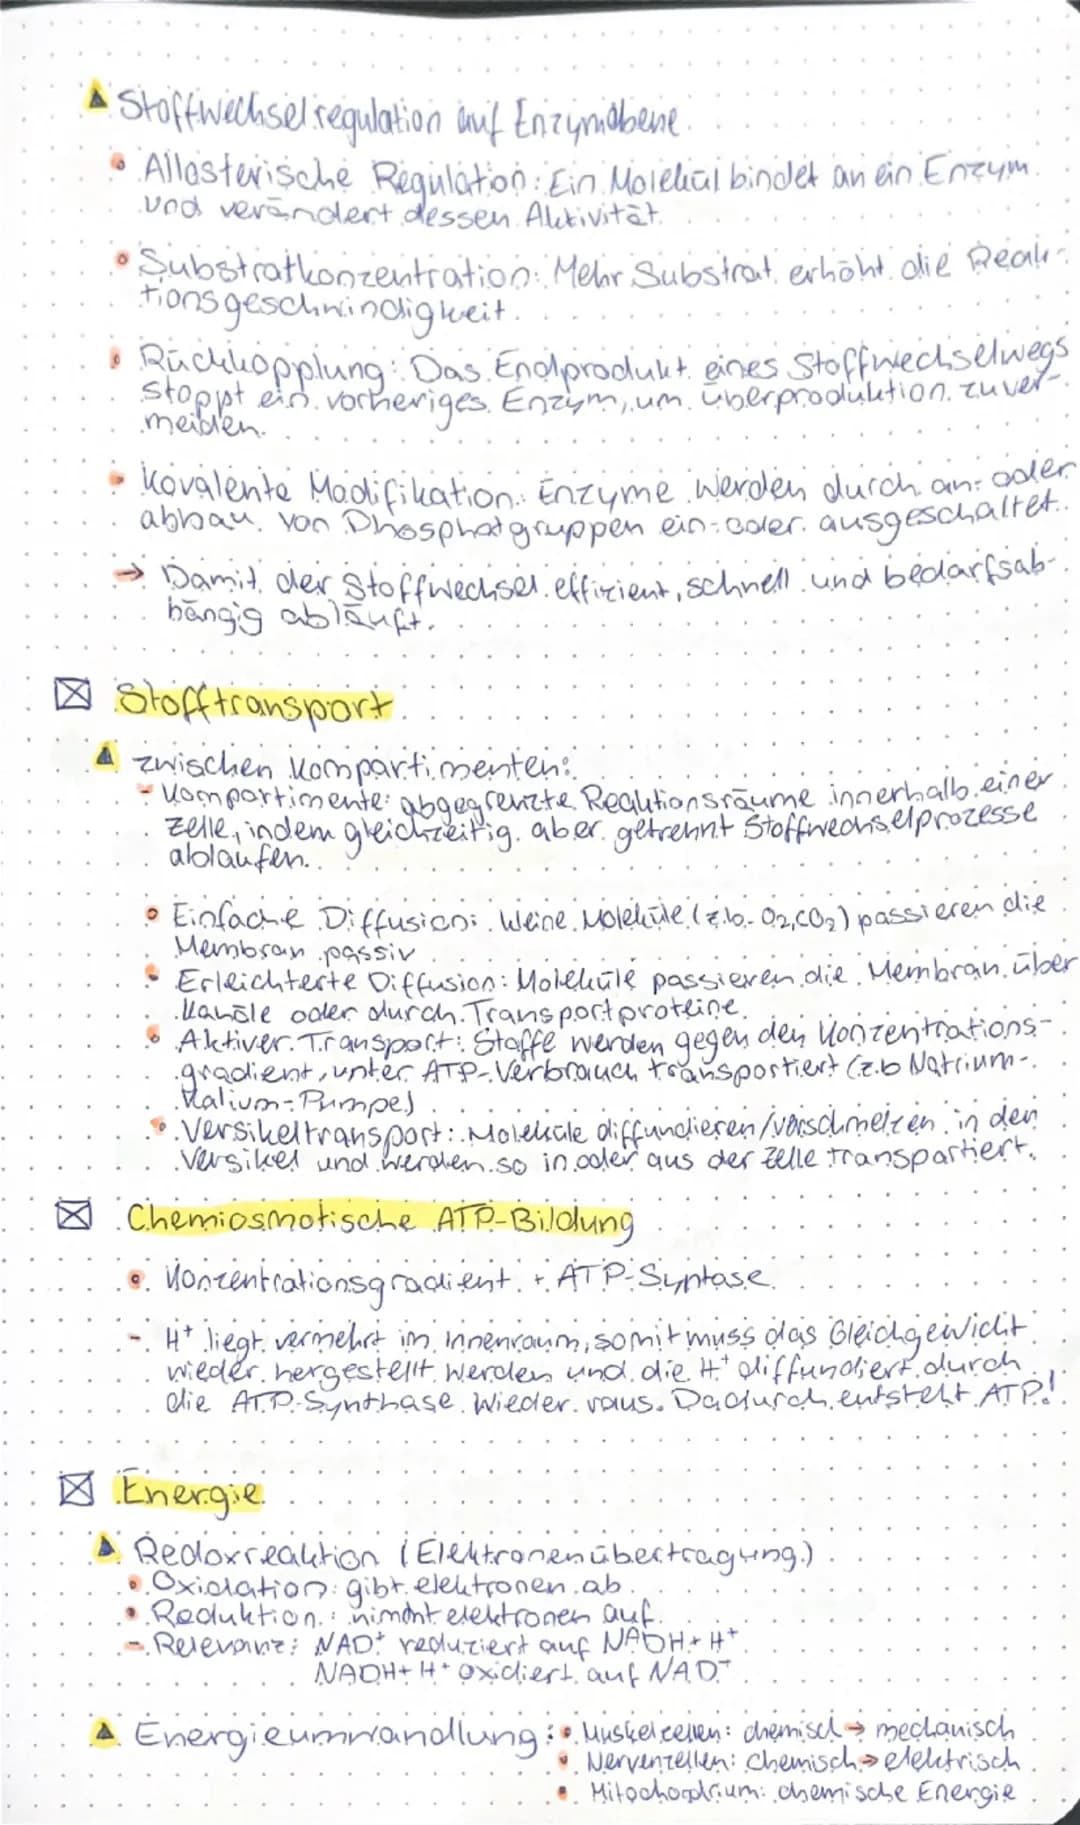 Stoffwechselregulation auf Enzymebene
Allosterische Regulation: Ein Molekül bindet an ein Enzym
und verändert dessen Aktivität
Substratkonzentration: Mehr Substrat erhöht die Reak-
tionsgeschwindigkeit.
Rückkopplung: Das Endprodukt eines Stoffwechselwegs
stoppt ein vorheriges Enzym, um überproduktion zu ver-
meiden.
Kovalente Modifikation: Enzyme werden durch an- oder
abbau von Phosphatgruppen ein- oder ausgeschaltet.
→ Damit der Stoffwechsel effizient, schnell und bedarfsab-
hängig abläuft.
Stofftransport
zwischen Kompartimenten:
- Kompartimente: abgegrenzte Reaktionsräume innerhalb einer
Zelle, indem gleichzeitig aber getrennt Stoffwechselprozesse
ablaufen.
Einfache Diffusion: kleine Moleküle (z.b. O2, CO2) passieren die
Membran passiv
Erleichterte Diffusion: Moleküle passieren die Membran über
Kanäle oder durch Transportproteine.
Aktiver Transport: Stoffe werden gegen den Konzentrations-
gradient, unter ATP-Verbrauch transportiert (z.b Natrium-
Kalium-Pumpe)
Versikeltransport: Moleküle diffundieren/verschmelzen in den
Versikel und werden so in oder aus der Zelle transportiert.
Chemiosmotische ATP-Bildung
Konzentrationsgradient + ATP-Syptase
- H+ liegt vermehrt im Innenraum, somit muss das Gleichgewicht
wieder hergestellt werden und die H+ diffundiert durch
die ATP-Synthase wieder raus. Dadurch entsteht ATP!
Energie
Redoxreaktion (Elektronenübertragung)
Oxidation: gibt elektronen ab
Reduktion: nimmt elektronen auf
- Relevanz: NAD+ reduziert auf NADH+H+
NADH+H+ oxidiert auf NAD+
Energieumwandlung: • Muskelzellen: chemisch → mechanisch
• Nervenzellen: Chemisch → elektrisch
• Mitochondrium: chemische Energie